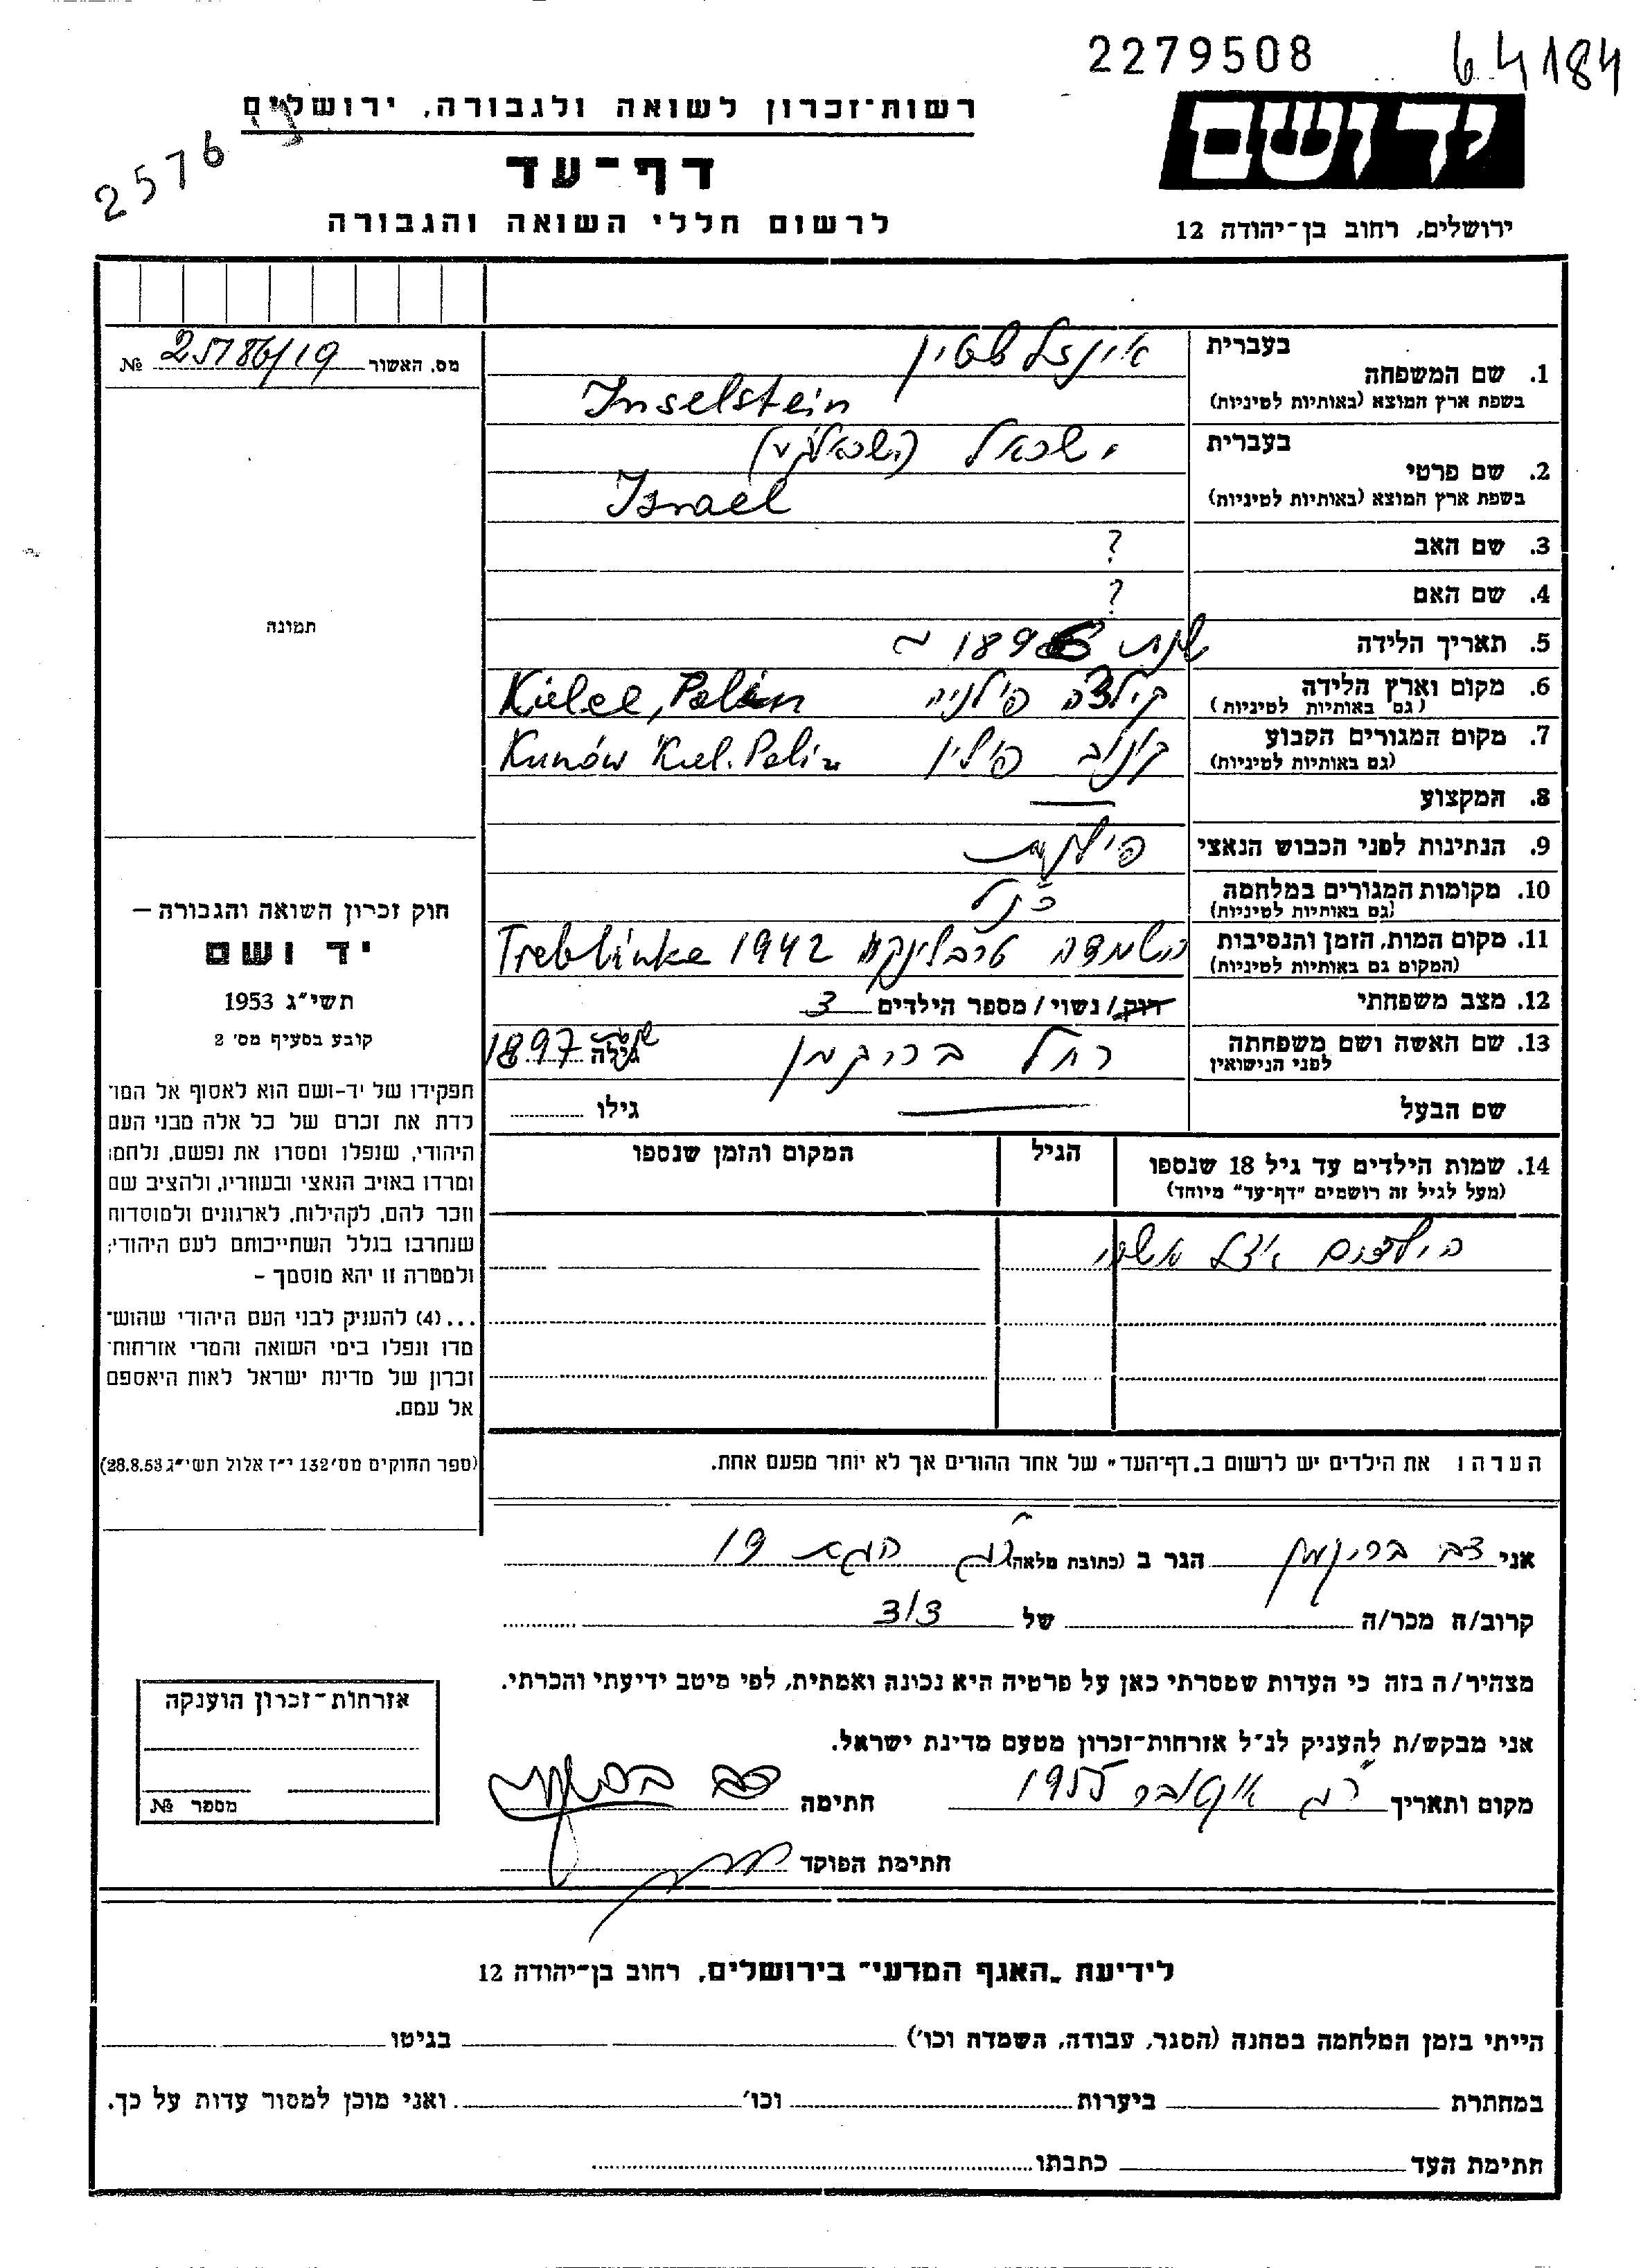 2279508 64184
רשות־זכרון לשואה ולגבורה, ירושלים
2576
דף־עד
לרשום חללי השואה והגבורה
יד ושם
ירושלים, רחוב בן־יהודה 12
מס. האשור 25186/19 №
תמונה
בעברית אינזלשטין
1. שם המשפחה
בשפת ארץ המוצא (באותיות לטיניות) Inselstein
בעברית ישראל
2. שם פרטי
בשפת ארץ המוצא (באותיות לטיניות) Israel
3. שם האב ?
4. שם האם ?
5. תאריך הלידה שנת 1896 ~
6. מקום וארץ הלידה קילצה פילניה Kielce, Polin
(גם באותיות לטיניות)
7. מקום המגורים הקבוע קונוב פולין Kunów Kiel. Polin
(גם באותיות לטיניות)
8. המקצוע —
9. הנתינות לפני הכבוש הנאצי פולנית
10. מקומות המגורים במלחמה כנ"ל
(גם באותיות לטיניות)
11. מקום המות, הזמן והנסיבות השמדה טרבלינקה Treblinke 1942
(המקום גם באותיות לטיניות)
12. מצב משפחתי רוק/נשוי/מספר הילדים 3
13. שם האשה ושם משפחתה רחל בריקמן גילה שנת 1897
לפני הנישואין
שם הבעל — גילו
14. שמות הילדים עד גיל 18 שנספו הגיל המקום והזמן שנספו
(מעל לגיל זה רושמים "דף־עד" מיוחד)
הילדים אצל אשתו
הערה: את הילדים יש לרשום ב„דף־העד" של אחד ההורים אך לא יותר מפעם אחת.
חוק זכרון השואה והגבורה –
יד ושם
תשי"ג 1953
קובע בסעיף מס' 2
תפקידו של יד-ושם הוא לאסוף אל המו־
לדת את זכרם של כל אלה מבני העם
היהודי, שנפלו ומסרו את נפשם, נלחמו
ומרדו באויב הנאצי ובעוזריו, ולהציב שם
וזכר להם, לקהילות, לארגונים ולמוסדות
שנחרבו בגלל השתייכותם לעם היהודי;
ולמטרה זו יהא מוסמך –
...(4) להעניק לבני העם היהודי שהוש־
מדו ונפלו בימי השואה והמרי אזרחות־
זכרון של מדינת ישראל לאות היאספם
אל עמם.
(ספר החוקים מס' 132 י"ז אלול תשי"ג 28.8.53)
אני צבי בריקמן הגר ב (כתובת מלאה) 19
קרוב/ה מכר/ה של
מצהיר/ה בזה כי העדות שמסרתי כאן על פרטיה היא נכונה ואמתית, לפי מיטב ידיעתי והכרתי.
אני מבקש/ת להעניק לנ"ל אזרחות־זכרון מטעם מדינת ישראל.
מקום ותאריך ר"ג אוקטובר 1955 חתימה
חתימת הפוקד
אזרחות־זכרון הוענקה
מספר №
לידיעת „האגף המדעי" בירושלים, רחוב בן־יהודה 12
הייתי בזמן המלחמה במחנה (הסגר, עבודה, השמדה וכו') בגיטו
במחתרת ביערות וכו' ואני מוכן למסור עדות על כך.
חתימת העד כתבתו